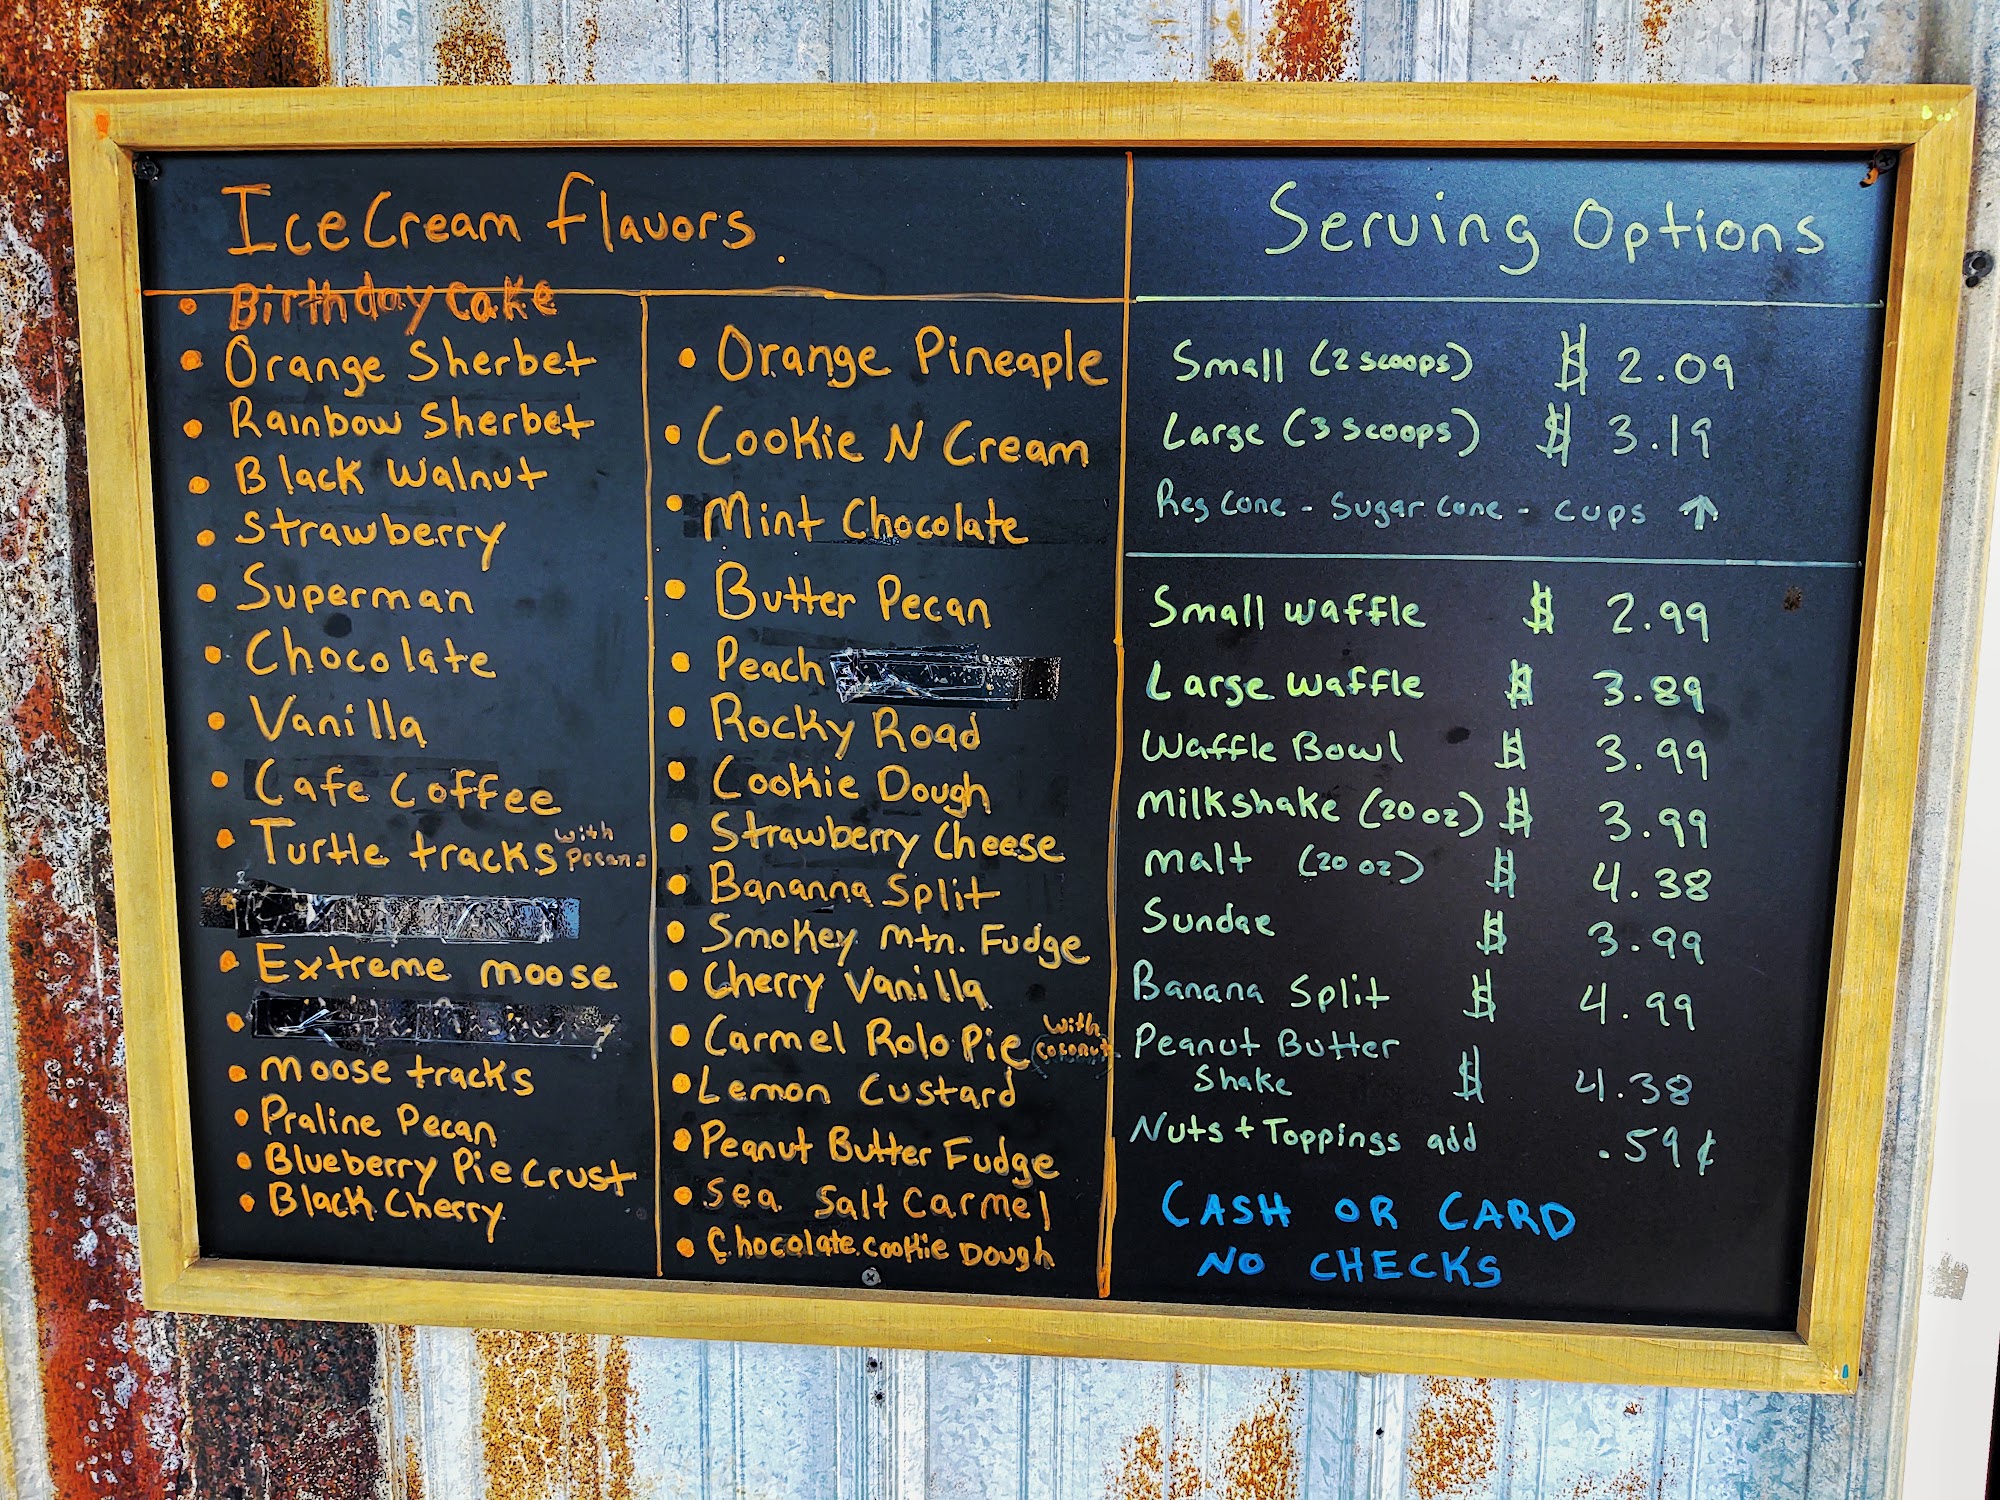 Ice Cream flavors.
• Birthday Cake
• Orange Sherbet
• Rainbow Sherbet
• Black Walnut
• Strawberry
• Superman
• Chocolate
• Vanilla
• Cafe Coffee
• Turtle tracks with Pecans
• Extreme moose
• moose tracks
• Praline Pecan
• Blueberry Pie Crust
• Black Cherry
• Orange Pineaple
• Cookie N Cream
• Mint Chocolate
• Butter Pecan
• Peach
• Rocky Road
• Cookie Dough
• Strawberry Cheese
• Bananna Split
• Smokey mtn. Fudge
• Cherry Vanilla
• Carmel Rolo Pie (with coconut)
• Lemon Custard
• Peanut Butter Fudge
• Sea Salt Carmel
• Chocolate cookie Dough
Serving Options
Small (2 scoops) $ 2.09
Large (3 scoops) $ 3.19
Reg Cone - Sugar Cone - Cups ↑
Small waffle $ 2.99
Large waffle $ 3.89
Waffle Bowl $ 3.99
Milkshake (20 oz) $ 3.99
malt (20 oz) $ 4.38
Sundae $ 3.99
Banana Split $ 4.99
Peanut Butter
Shake $ 4.38
Nuts + Toppings add .59¢
CASH OR CARD
NO CHECKS